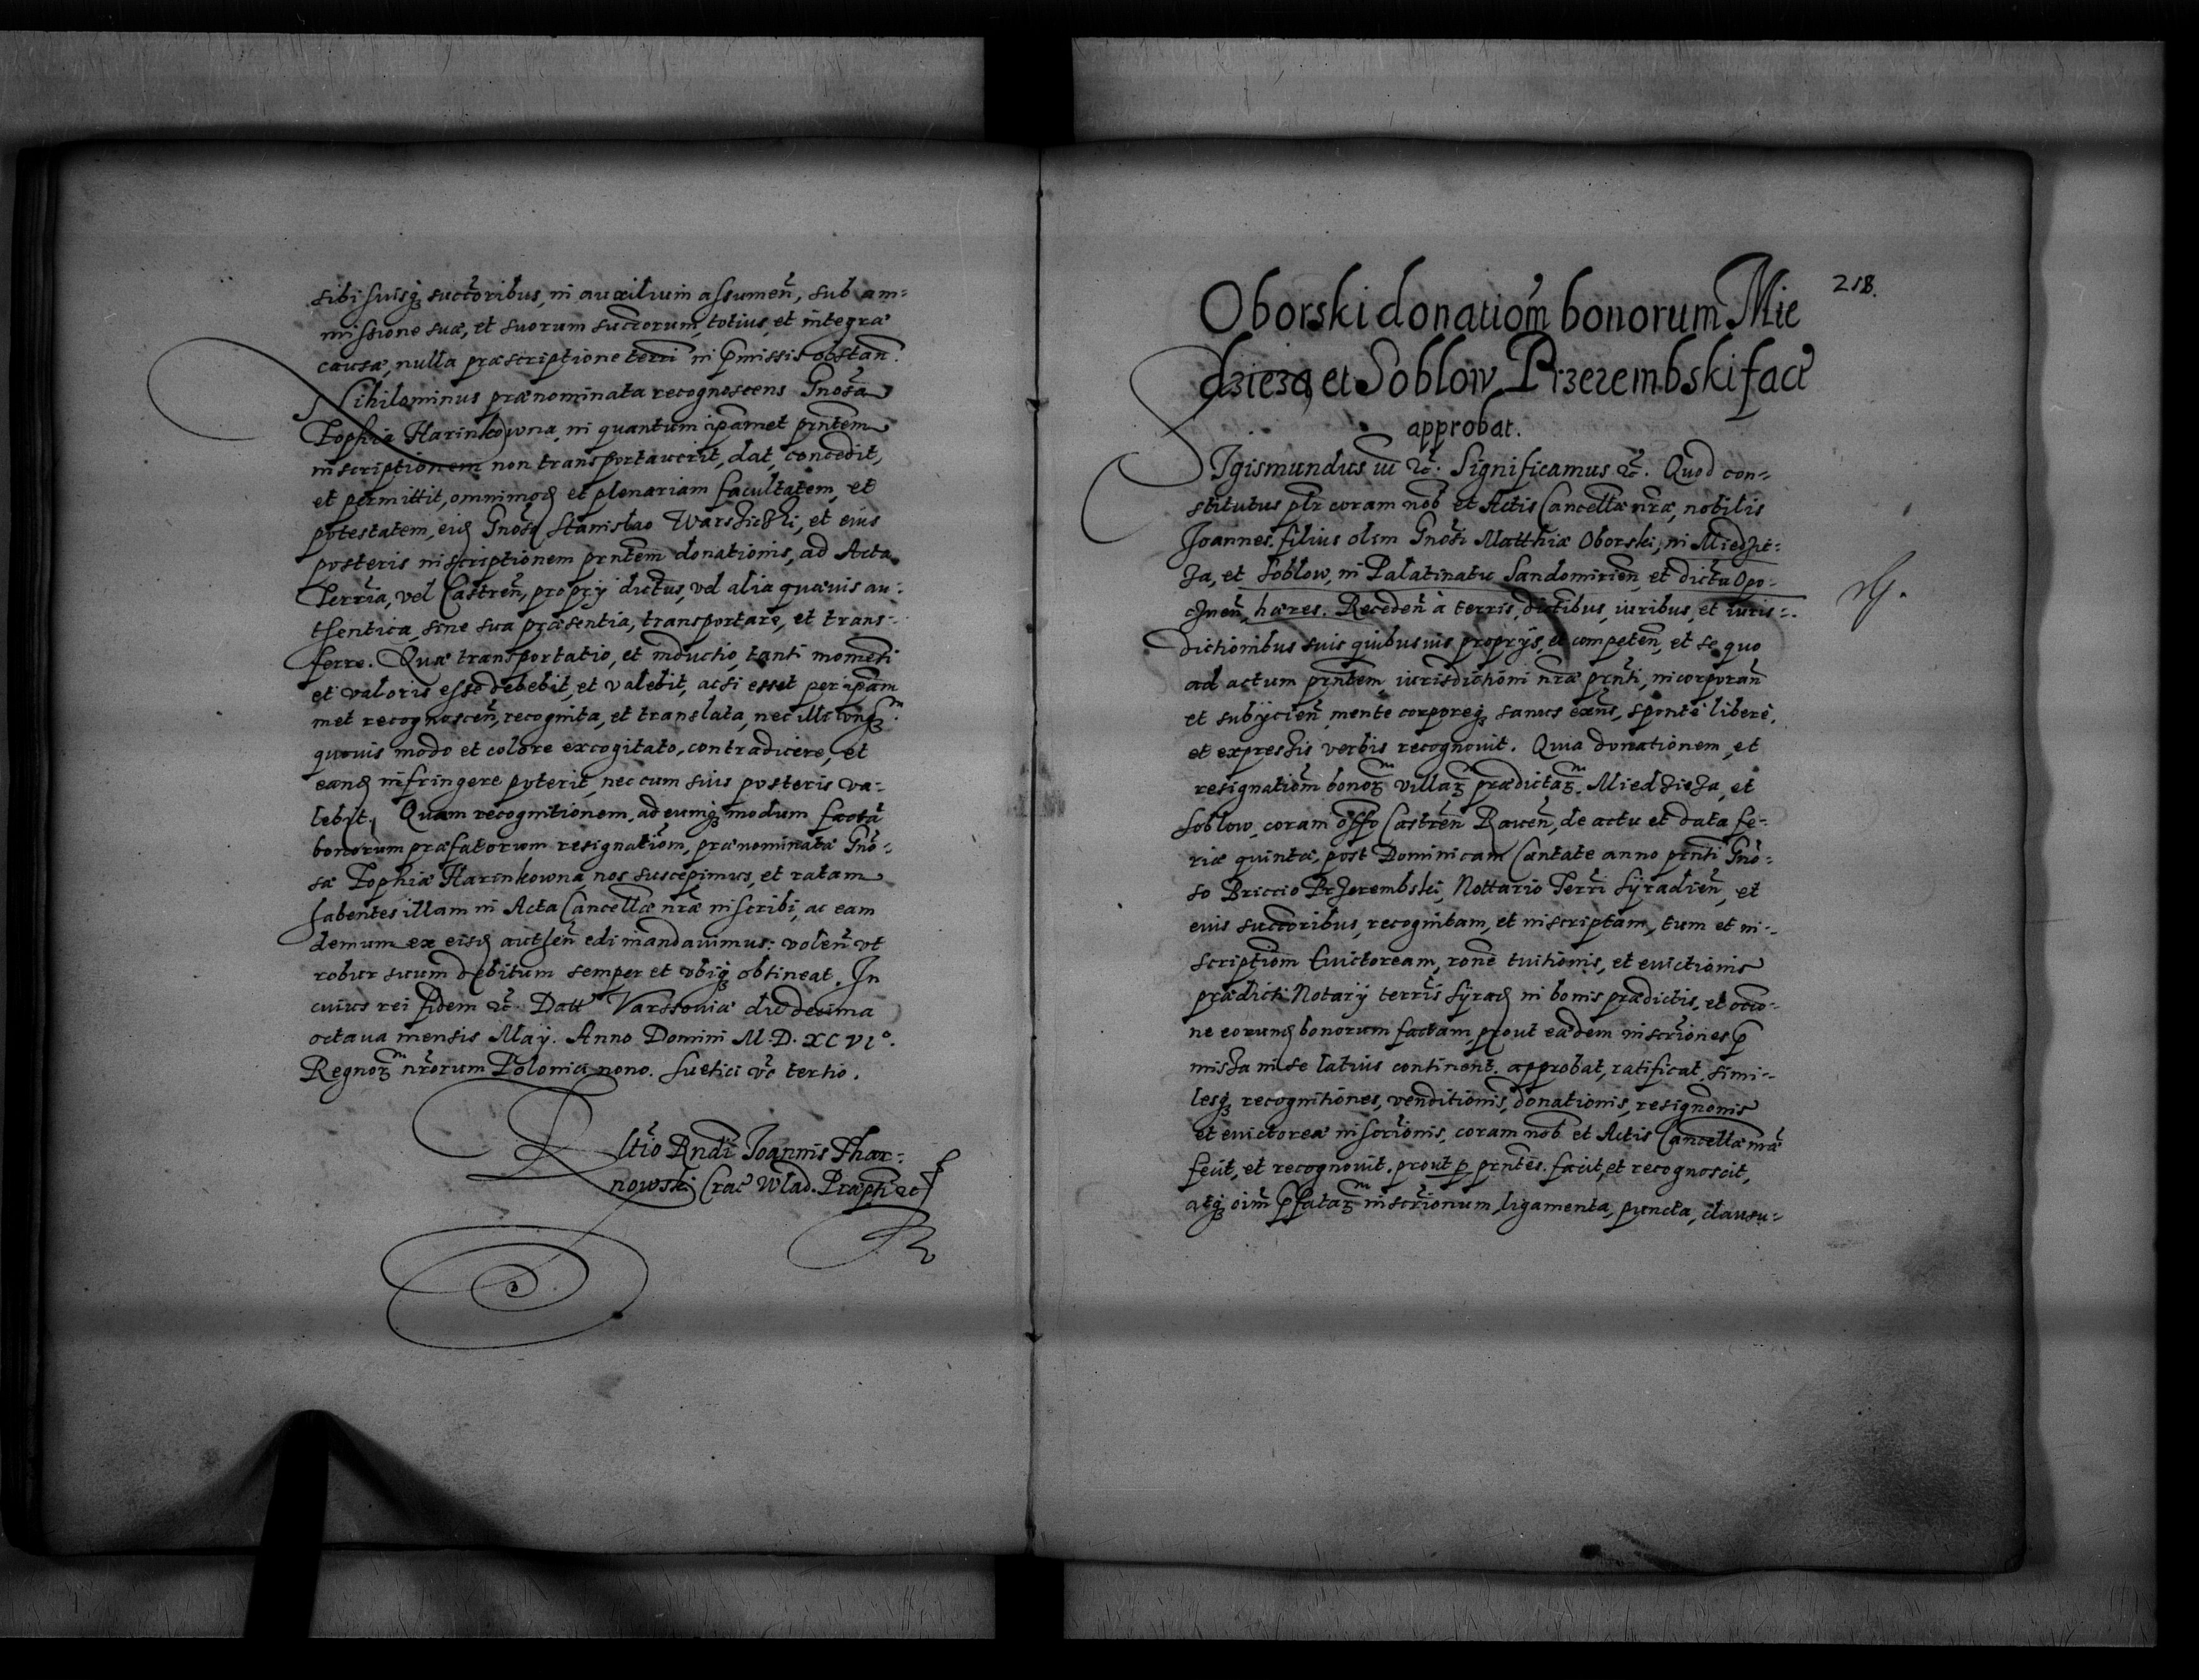 sibi suisq3 succoribus, in auxilium assumen̄, sub am=
missione suæ, et suorum succorum, totius et integræ
causæ, nulla præscriptione terri in p̄missis obstan̄.
Nihilominus prænominata recognoscens Gnosa
Zophia Harinkowna, in quantum ipamet pn̄tem
inscriptionem non transportaverit, dat, concedit,
et permittit, omnimod et plenariam facultatem, et
potestatem, eid Gnoso Stanislao Warszicki, et eius
posteris inscriptionem pn̄tem donationis, ad Acta
Terria, vel Castren̄, proprij dictus, vel alia quævis au=
thentica, sine sua præsentia, transportare, et trans=
ferre. Quæ transportatio, et inductio, tanti momēti
et valoris esse debebit, et valebit, acsi esset per ipam
met recognoscen̄, recognita, et translata, nec illi
quovis modo et colore excogitato, contradicere, et
eand infringere poterit, nec cum suis posteris va=
lebit. Quam recognitionem, ad eumq3 modum factā
bonorum præfatorum resignatiom, prænominatæ Gnō=
sæ Zophiæ Harinkowna nos suscepimus, et ratam
habentes illam in Acta Cancellæ nr̄æ inscribi, ac eam
demum ex eisd authen̄ edi mandavimus: volen̄ vt
robur suum debitum semper et vbiq3 obtineat. In
cuius rei fidem &c. Datt Varssoviæ die decima
octava mensis Maij. Anno Domini M.D.XCVI°.
Regnor3 nr̄orum Poloniæ nono. Suetici v̄o tertio.
Rltio Rndi Joannis Thar=
nowski Crac̄ Wlad. Præpti &c
218.
Oborski donatiom̄ bonorum Mie
dzieza et Soblow Przerembski fact
approbat.
Sigismundus iii &c. Significamus &c. Quod con=
stitutus pl̄r coram nob et Actis Cancellæ nr̄æ, nobilis
Joannes filius olim Gnosi Matthiæ Oborski, in Miedzie=
za, et Soblow, in Palatinatu Sandomirien̄ et dictu Opo=
cznen̄, hæres. Receden̄ à terris, dictibus, iuribus, et iuris=
dictionibus suis quibusuis proprijs, et competen̄, et se quo
ad actum pn̄tem, iurisdictioni nr̄æ pn̄ti, incorporan̄
et subijcien̄, mente corporeq3 sanus exn̄s, sponte libere,
et expressis verbis recognouit. Quia donationem, et
resignatiom bonor3 villar3 prædictar3, Miedzieza, et
Soblow, coram offo Castren̄ Raven̄, de actu et data fe=
riæ quintæ, post Dominicam Cantate anno pn̄ti Gnō=
so Briccio Przerembski, Nottario Terri Syradien̄, et
eius succoribus, recognitam, et inscriptam, tum et in=
scriptiom Evictoream, rone tuitionis, et evictionis
prædicti Notarij terris Syrad in bonis prædictis, et occo=
ne eorund bonorum factam, prout eædem inscrīones p̄
missa in se latius continent. approbat, ratificat, simi=
lesq3 recognitiones, venditionis, donationis, resignonis
et evictoreæ inscrīonis, coram nob et Actis Cancellæ nr̄æ
fecit, et recognovit. prout p pn̄tes. facit, et recognoscit,
atq3 oim p̄fatar3 inscrīonum, ligamenta, puncta, clausu=